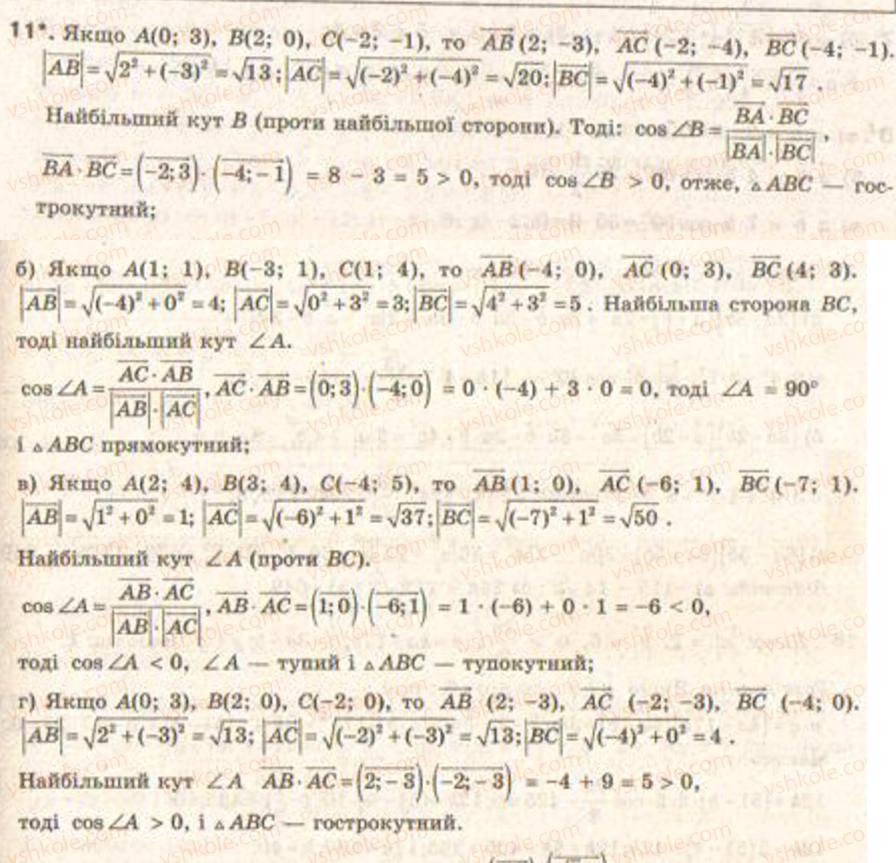 11*. Якщо A(0; 3), B(2; 0), C(-2; -1), то AB (2; -3), AC (-2; -4), BC (-4; -1).
|AB| = √(2² + (-3)²) = √13; |AC| = √((-2)² + (-4)²) = √20; |BC| = √((-4)² + (-1)²) = √17 .
Найбільший кут B (проти найбільшої сторони). Тоді: cos∠B = (BA · BC) / (|BA| · |BC|),
BA · BC = (-2; 3) · (-4; -1) = 8 - 3 = 5 > 0, тоді cos∠B > 0, отже, △ABC — гос-
трокутний;
б) Якщо A(1; 1), B(-3; 1), C(1; 4), то AB (-4; 0), AC (0; 3), BC (4; 3).
|AB| = √((-4)² + 0²) = 4; |AC| = √(0² + 3²) = 3; |BC| = √(4² + 3²) = 5 . Найбільша сторона BC,
тоді найбільший кут ∠A.
cos∠A = (AC · AB) / (|AB| · |AC|), AC · AB = (0; 3) · (-4; 0) = 0 · (-4) + 3 · 0 = 0, тоді ∠A = 90°
і △ABC прямокутний;
в) Якщо A(2; 4), B(3; 4), C(-4; 5), то AB (1; 0), AC (-6; 1), BC (-7; 1).
|AB| = √(1² + 0²) = 1; |AC| = √((-6)² + 1²) = √37; |BC| = √((-7)² + 1²) = √50 .
Найбільший кут ∠A (проти BC).
cos∠A = (AB · AC) / (|AB| · |AC|), AB · AC = (1; 0) · (-6; 1) = 1 · (-6) + 0 · 1 = -6 < 0,
тоді cos∠A < 0, ∠A — тупий і △ABC — тупокутний;
г) Якщо A(0; 3), B(2; 0), C(-2; 0), то AB (2; -3), AC (-2; -3), BC (-4; 0).
|AB| = √(2² + (-3)²) = √13; |AC| = √((-2)² + (-3)²) = √13; |BC| = √((-4)² + 0²) = 4 .
Найбільший кут ∠A AB · AC = (2; -3) · (-2; -3) = -4 + 9 = 5 > 0,
тоді cos∠A > 0, і △ABC — гострокутний.